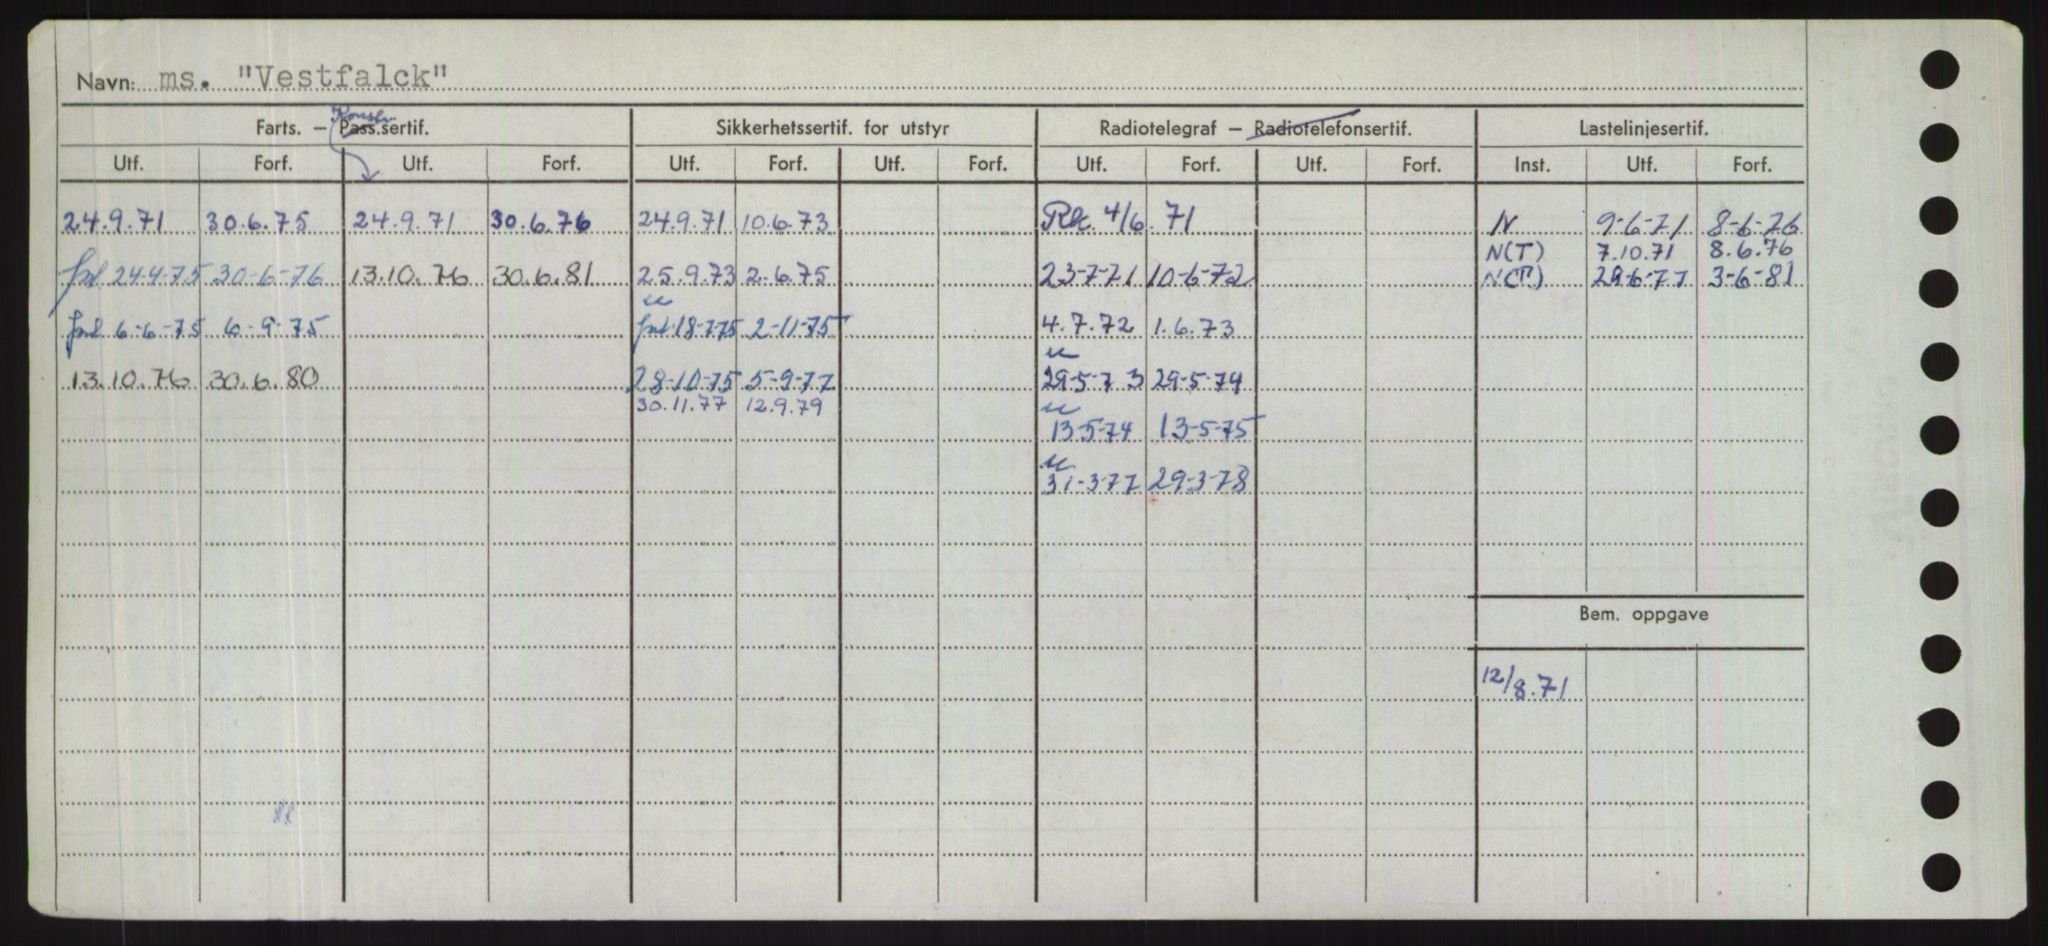 Navn: ms. "Vestfalck"
Farts. — Pass.sertif. Konstr. Sikkerhetssertif. for utstyr Radiotelegraf — Radiotelefonsertif. Lastelinjesertif.
Utf. Forf. Utf. Forf. Utf. Forf. Utf. Forf. Utf. Forf. Utf. Forf. Inst. Utf. Forf.
24.9.71 30.6.75 24.9.71 30.6.76 24.9.71 10.6.73 Rk. 4/6.71 N 9-6-71 8-6-76
N(T) 7.10.71 8.6.76
fnl 24-4-75 30-6-76 13.10.76 30.6.81 25.9.73 2.6.75 23-7-71 10-6-72 N(T) 29-6-77 3-6-81
fnl 6-6-75 6-9-75 fnl 18-7-75 2-11-75 4.7.72 1.6.73
13.10.76 30.6.80 28-10-75 5-9-77 29-5-73 29-5-74
30.11.77 12.9.79
13-5-74 13-5-75
31-3-77 29-3-78
Bem. oppgave
12/8.71